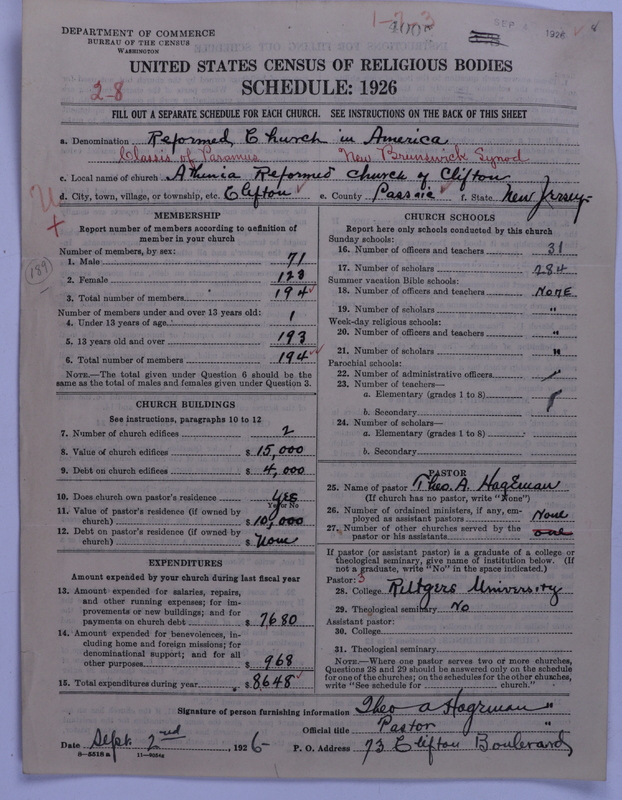 1-2-3
SEP 1926
DEPARTMENT OF COMMERCE
BUREAU OF THE CENSUS
WASHINGTON
UNITED STATES CENSUS OF RELIGIOUS BODIES
SCHEDULE: 1926
2-8
FILL OUT A SEPARATE SCHEDULE FOR EACH CHURCH. SEE INSTRUCTIONS ON THE BACK OF THIS SHEET
a. Denomination Reformed Church in America
Classis of Paramus New Brunswick Synod
c. Local name of church Athenia Reformed Church of Clifton
d. City, town, village, or township, etc. Clifton e. County Passaic f. State New Jersey-
189
MEMBERSHIP
Report number of members according to definition of
member in your church
Number of members, by sex:
1. Male 71
2. Female 123
3. Total number of members 194
Number of members under and over 13 years old:
4. Under 13 years of age 1
5. 13 years old and over 193
6. Total number of members 194
NOTE.—The total given under Question 6 should be the
same as the total of males and females given under Question 3.
CHURCH BUILDINGS
See instructions, paragraphs 10 to 12
7. Number of church edifices 2
8. Value of church edifices $ 15,000
9. Debt on church edifices $ 4,000
10. Does church own pastor's residence Yes
Yes or No
11. Value of pastor's residence (if owned by
church) $ 10,000
12. Debt on pastor's residence (if owned by
church) $ None
EXPENDITURES
Amount expended by your church during last fiscal year
13. Amount expended for salaries, repairs,
and other running expenses; for im-
provements or new buildings; and for
payments on church debt $ 7680
14. Amount expended for benevolences, in-
cluding home and foreign missions; for
denominational support; and for all
other purposes $ 968
15. Total expenditures during year $ 8648
CHURCH SCHOOLS
Report here only schools conducted by this church
Sunday schools:
16. Number of officers and teachers 31
17. Number of scholars 284
Summer vacation Bible schools:
18. Number of officers and teachers None
19. Number of scholars "
Week-day religious schools:
20. Number of officers and teachers "
21. Number of scholars "
Parochial schools:
22. Number of administrative officers
23. Number of teachers—
a. Elementary (grades 1 to 8)
b. Secondary
24. Number of scholars—
a. Elementary (grades 1 to 8)
b. Secondary
PASTOR
25. Name of pastor Theo. A. Hageman
(If church has no pastor, write "None")
26. Number of ordained ministers, if any, em-
ployed as assistant pastors None
27. Number of other churches served by the
pastor or his assistants
If pastor (or assistant pastor) is a graduate of a college or
theological seminary, give name of institution below. (If
not a graduate, write "No" in the space indicated.)
Pastor: 3
28. College Rutgers University
29. Theological seminary No
Assistant pastor:
30. College
31. Theological seminary
NOTE.—Where one pastor serves two or more churches,
Questions 28 and 29 should be answered only on the schedule
for one of the churches; on the schedules for the other churches,
write "See schedule for church."
Signature of person furnishing information Theo A Hageman "
Official title Pastor "
Date Sept. 2nd, 1926- P. O. Address 73 Clifton Boulevard
8-5518 a 11-9054a